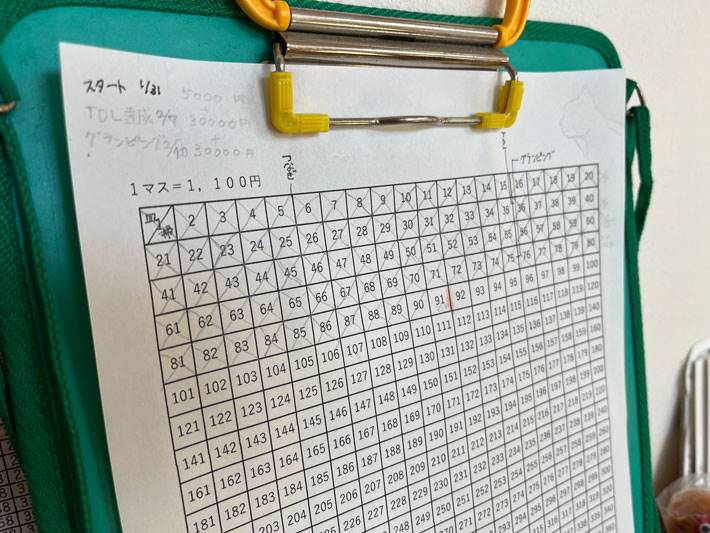 スタート 1/31 5000 円
TDL達成 2/7 30000円
グランピング 30000円
グランピング
1マス=1,100円
2 3 4 5 6 7 8 9 10 11 12 13 14 15 16 17 18 19 20
21 22 23 24 25 26 27 28 29 30 31 32 33 34 35 36 37 38 39 40
41 42 43 44 45 46 47 48 49 50 51 52 53 54 55 56 57 58 59 60
61 62 63 64 65 66 67 68 69 70 71 72 73 74 75 76 77 78 79 80
81 82 83 84 85 86 87 88 89 90 91 92 93 94 95 96 97 98 99 100
101 102 103 104 105 106 107 108 109 110 111 112 113 114 115 116 117 118 119 120
121 122 123 124 125 126 127 128 129 130 131 132 133 134 135 136 137 138 139 140
141 142 143 144 145 146 147 148 149 150 151 152 153 154 155 156 157 158 159 160
161 162 163 164 165 166 167 168 169 170 171 172 173 174 175 176 177 178 179 180
181 182 183 184 185 186 187 188 189 190 191 192 193 194 195 196 197 198 199 200
203 204 205 206 207 208 209 210 211 212 213 214 215 216 217 218 219 220
226 227 228 229 230 231 232 233 234 235 236 237 238 239 240
249 250 251 252 253 254 255 256 257 258 259 260
271 272 273 274 275 276 277 278 279 280
293 294 295 296 297 298 299 300